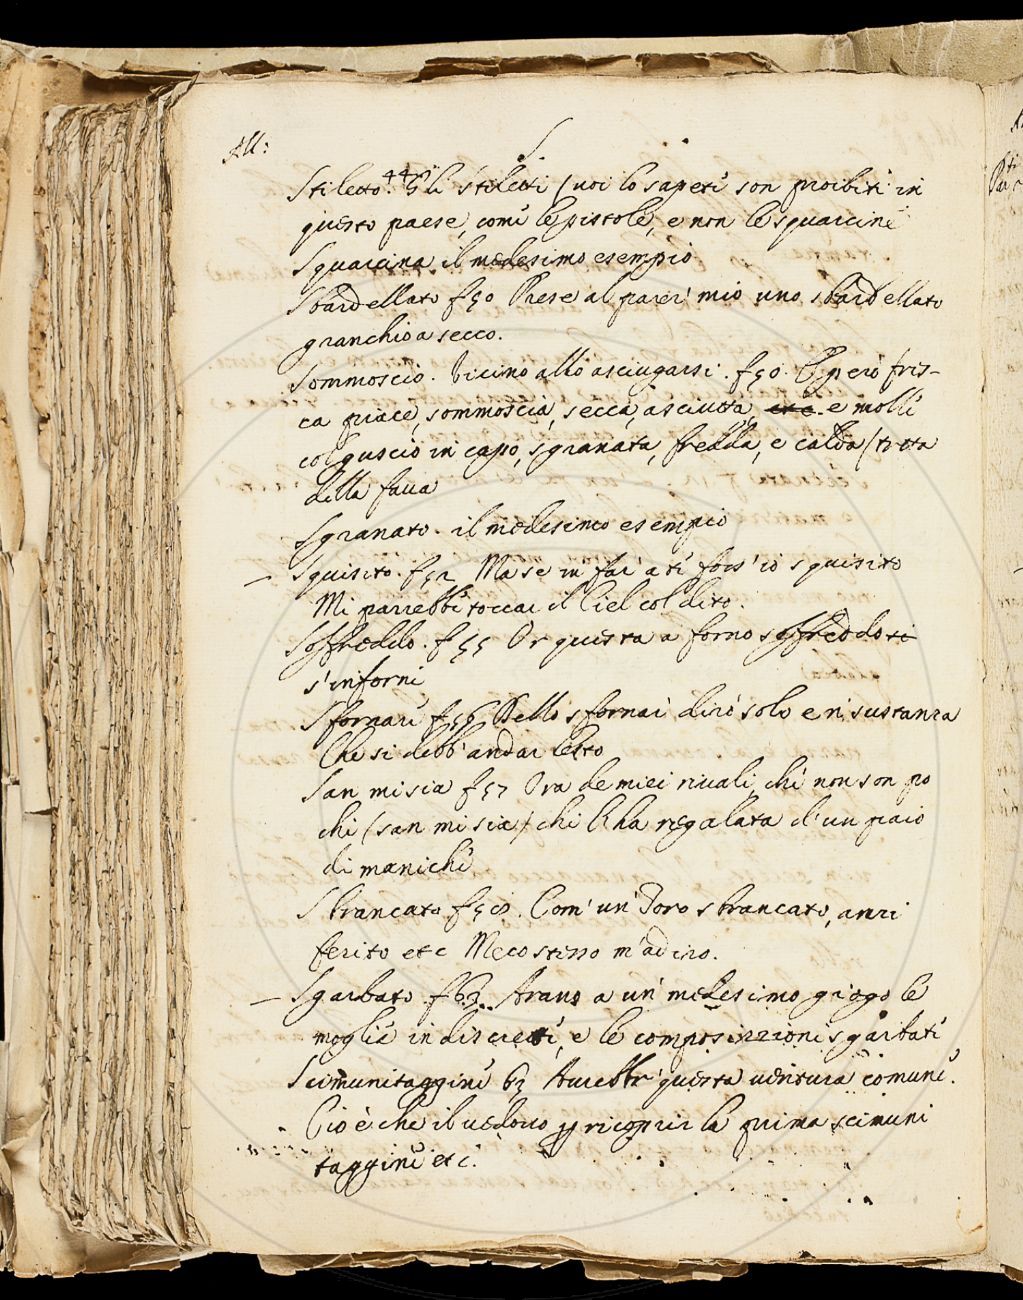 All:
S.
Stiletto. 44 Gli stiletti (voi lo sapete son proibiti in
questo paese, come le pistole, e non le squarcine
Squarcina il medesimo esempio
Sbardellato f 50 Prese al parer mio uno sbardellato
granchio a secco.
Sommoscio. Vicino allo asciugarsi. f 50. E però fres-
ca piace, sommoscia, secca, asciutta, e molle
col guscio in capo, sgranata, fredda, e calda (tratta
della fava
Sgranato. il medesimo esempio
Squisito. f 52 Ma se in far' a te foss' io squisito
Mi parrebbe toccar il Ciel col dito.
Soffreddo. f 55 Or questa a forno soffreddo si
s'inforni
Sfornare f 56 Dello sfornar dirò solo e 'n sustanza
Che si debb'andar lesto
San mi sia f 57 Ora de miei rivali, che non son po
chi (san mi sia) chi l'ha regalata d'un paio
di maniche
Sbrancato f 58. Com' un Toro sbrancato, anzi
ferito etc Meco stesso m'adiro.
Sgarbato. f 63. Arano a un medesimo giogo le
moglie indiscrete, e le composizzioni sgarbate
Scimunitaggine 63 Avrebbe questa ventura comune.
Ciò è che il vedovo ricoprir la prima scimuni
taggine etc.